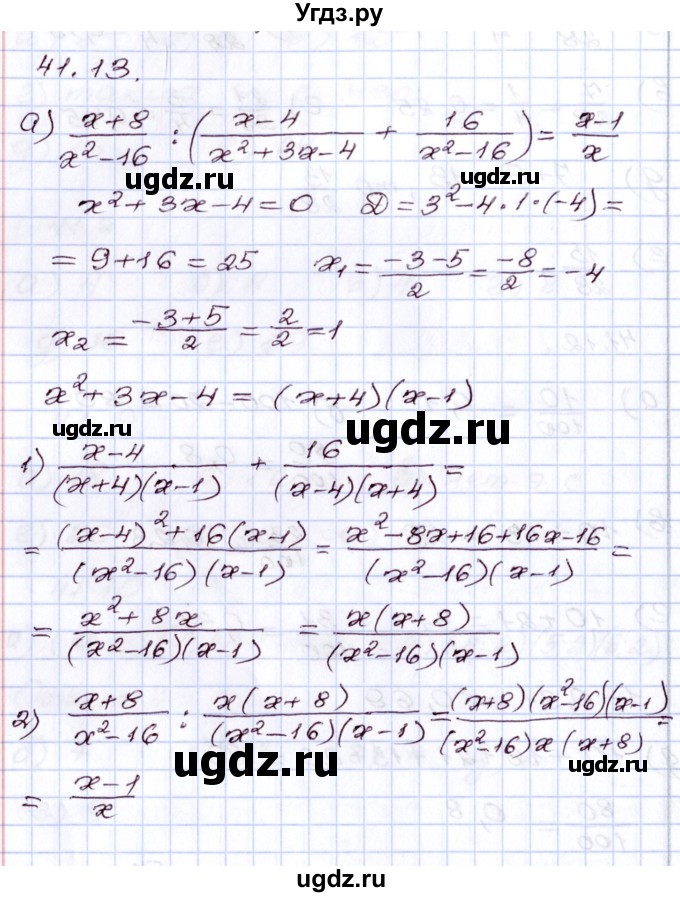 Угдз.ру
41.13.
а) (x+8)/(x²-16) : ((x-4)/(x²+3x-4) + 16/(x²-16)) = (x-1)/x
ugdz.ru ugdz.ru
x²+3x-4=0 D=3²-4·1·(-4)=
=9+16=25 x₁=(-3-5)/2=-8/2=-4
x₂=(-3+5)/2=2/2=1
x²+3x-4=(x+4)(x-1)
ugdz.ru ugdz.ru
1) (x-4)/((x+4)(x-1)) + 16/((x-4)(x+4))=
=((x-4)²+16(x-1))/((x²-16)(x-1))=(x²-8x+16+16x-16)/((x²-16)(x-1))=
=(x²+8x)/((x²-16)(x-1)) =(x(x+8))/((x²-16)(x-1))
2) (x+8)/(x²-16) : (x(x+8))/((x²-16)(x-1))=((x+8)(x²-16)(x-1))/((x²-16)x(x+8))=
ugdz.ru ugdz.ru
=(x-1)/x
ugdz.ru